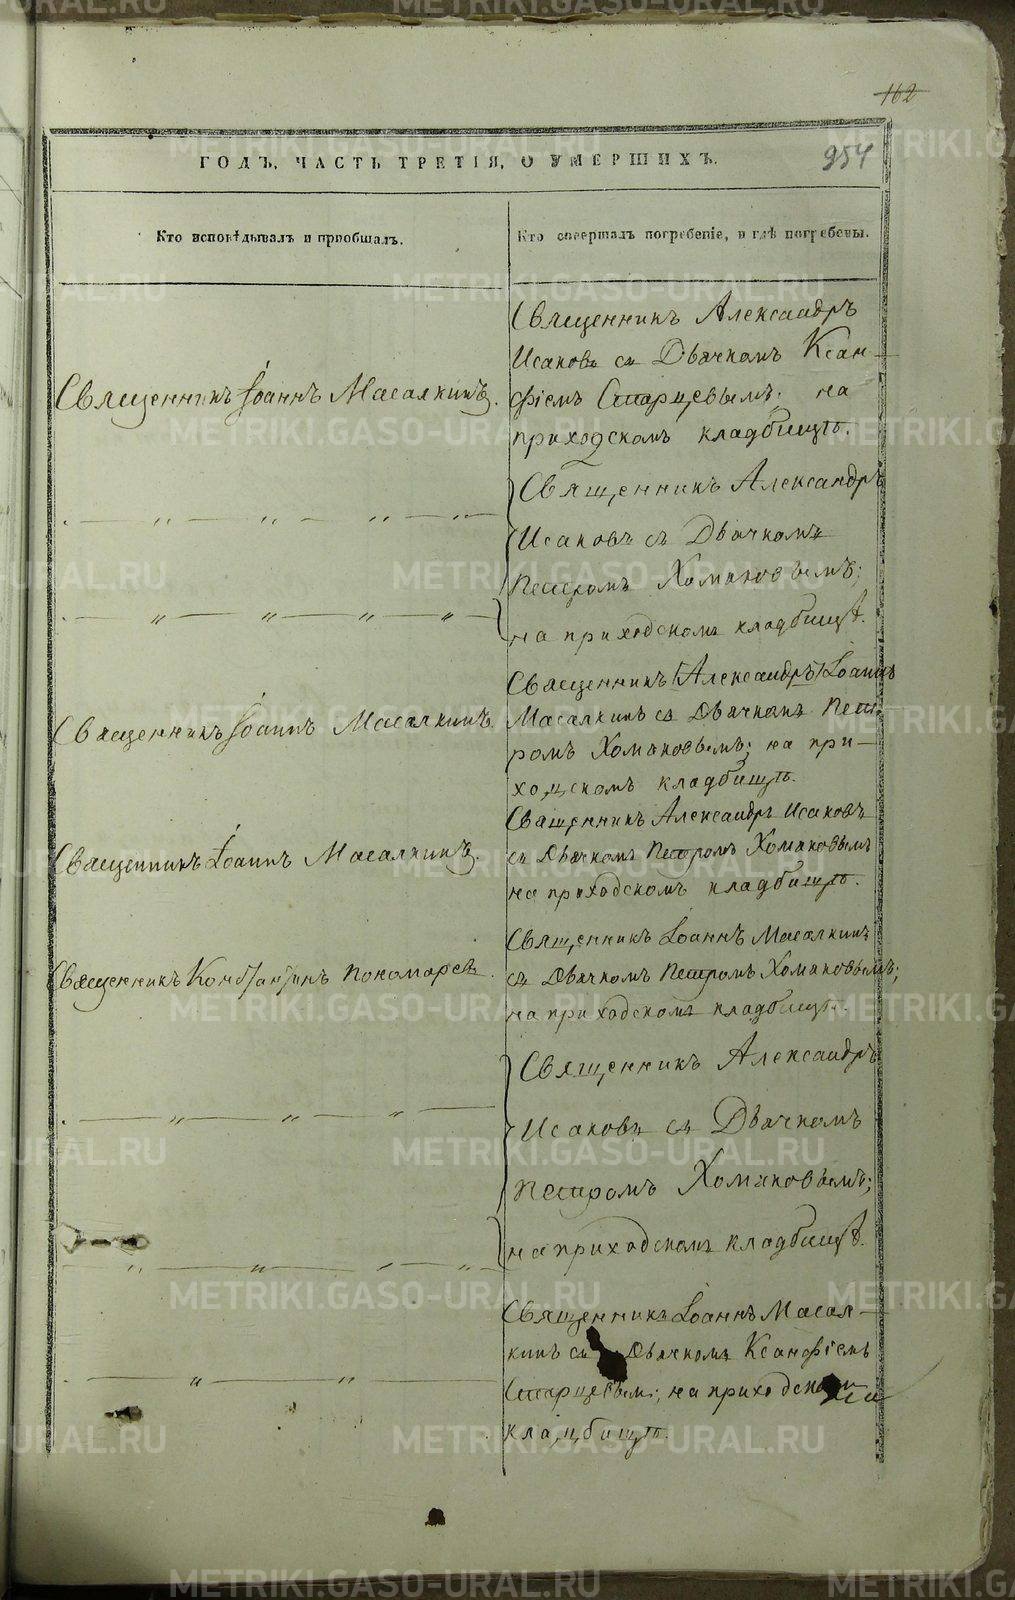 162
954
ГОДЪ, ЧАСТЬ ТРЕТІЯ, О УМЕРШИХЪ.
Кто исповѣдывалъ и пріобщалъ.
Кто совершалъ погребеніе, и гдѣ погребены.
Священникъ Іоаннъ Масалкинъ.
Священникъ Александръ
Исаковъ съ Дьячкомъ Ксан-
фіемъ Старцевымъ; на
приходскомъ кладбищѣ.
Священникъ Александръ
Исаковъ съ Дьячкомъ
Петромъ Хомяковымъ;
на приходскомъ кладбищѣ.
Священникъ Іоаннъ Масалкинъ
Священникъ (Александръ) Іоаннъ
Масалкинъ съ Дьячкомъ Пет-
ромъ Хомяковымъ; на при-
ходскомъ кладбищѣ.
Священникъ Іоаннъ Масалкинъ.
Священникъ Александръ Исаковъ
съ Дьячкомъ Петромъ Хомяковымъ
на приходскомъ кладбищѣ.
Священникъ Константинъ Пономаревъ.
Священникъ Іоаннъ Масалкинъ
съ Дьячкомъ Петромъ Хомяковымъ;
на приходскомъ кладбищѣ.
Священникъ Александръ
Исаковъ съ Дьячкомъ
Петромъ Хомяковымъ;
на приходскомъ кладбищѣ.
Священникъ Іоаннъ Масал-
кинъ съ Дьячкомъ Ксанфіемъ
Старцевым; на приходскомъ
кладбищѣ.
METRIKI.GASO-URAL.RU